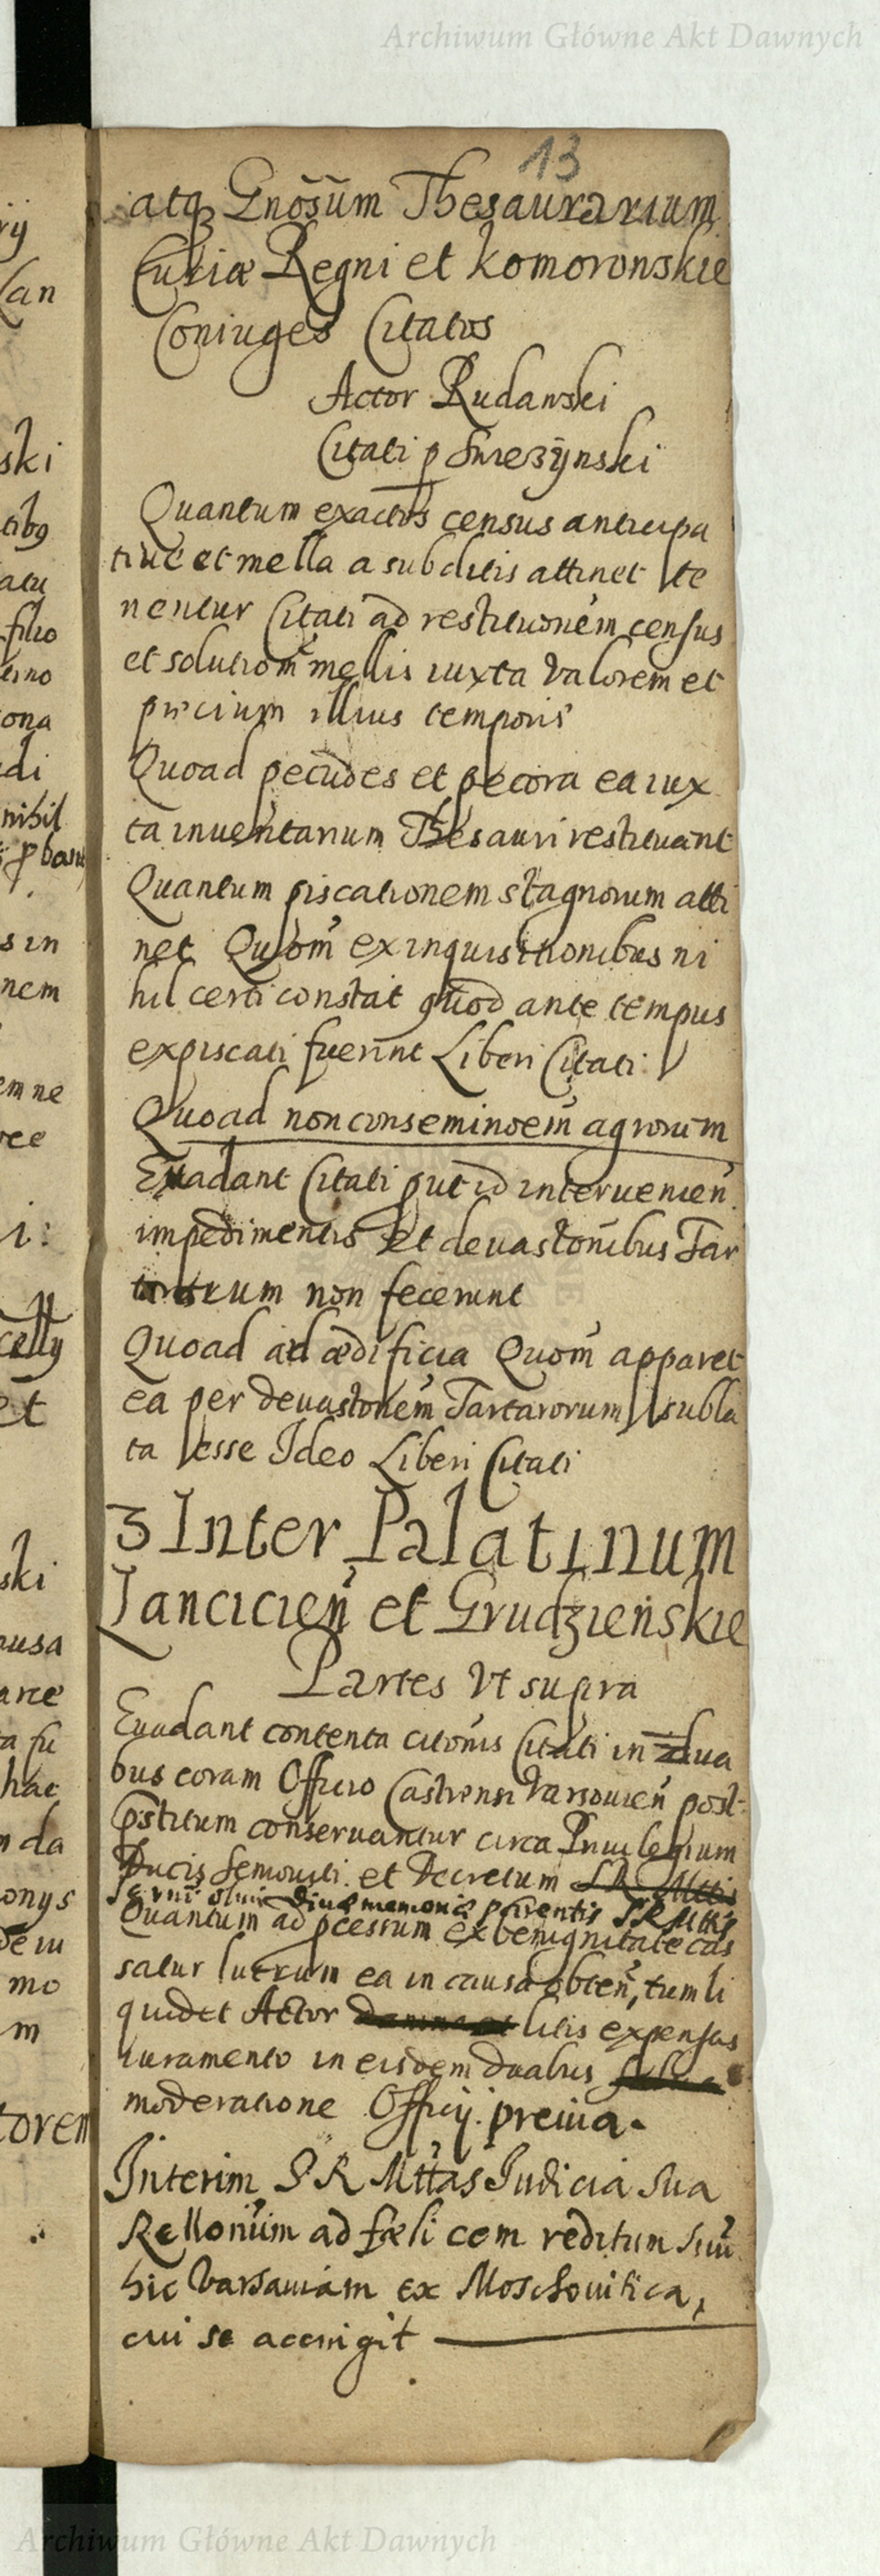 Archiwum Główne Akt Dawnych
13
atq3 Gnosum Thesaurarium
Curiæ Regni et Komorowskie
Coniuges Citatos
Actor Rudawski
Citati p Swierzynski
Quantum exactos census anticipa
tiue et mella a subditis attinet te
nentur Citati ad restitucionem census
et solutiom mellis iuxta Valorem et
precium illius temporis
Quoad pecudes et pecora ea iux
ta inuentarium Thesauri restituant
Quantum piscationem stagnorum atti
net Quom ex inquisitionibus ni
hil certi constat quod ante tempus
expiscati fuerint Liberi Citati
Quoad non conseminoem agrorum
Euadant Citati id interuenien
impedimentis et deuastonibus Tar
rum non fecerunt
Quoad ad ædificia Quom apparet
ea per deuastonem Tartarorum subla
ta esse Ideo Liberi Citati
3 Inter Palatinum
Lancicien et Grudzienskie
Partes Vt supra
Euadant contenta citonis Citati in dua
bus coram Officio Castrensi Varsouien post
pstitum conseruantur circa Priuilegium
Ducis Semouiti et Decretum
olim Diuæ memoriæ parentis S R Mttis
Quantum ad pcessum ex benignitate cas
satur lucrum ea in causa obten, tum li
quidet Actor litis expensas
iuramento in eisdem duabus
moderatione Officij preuia.
Interim S R Mttas Judicia sua
Rellonum ad fæli cem reditum suu
hic Varsauiam ex Moschouitica,
cui se accingit
Archiwum Główne Akt Dawnych